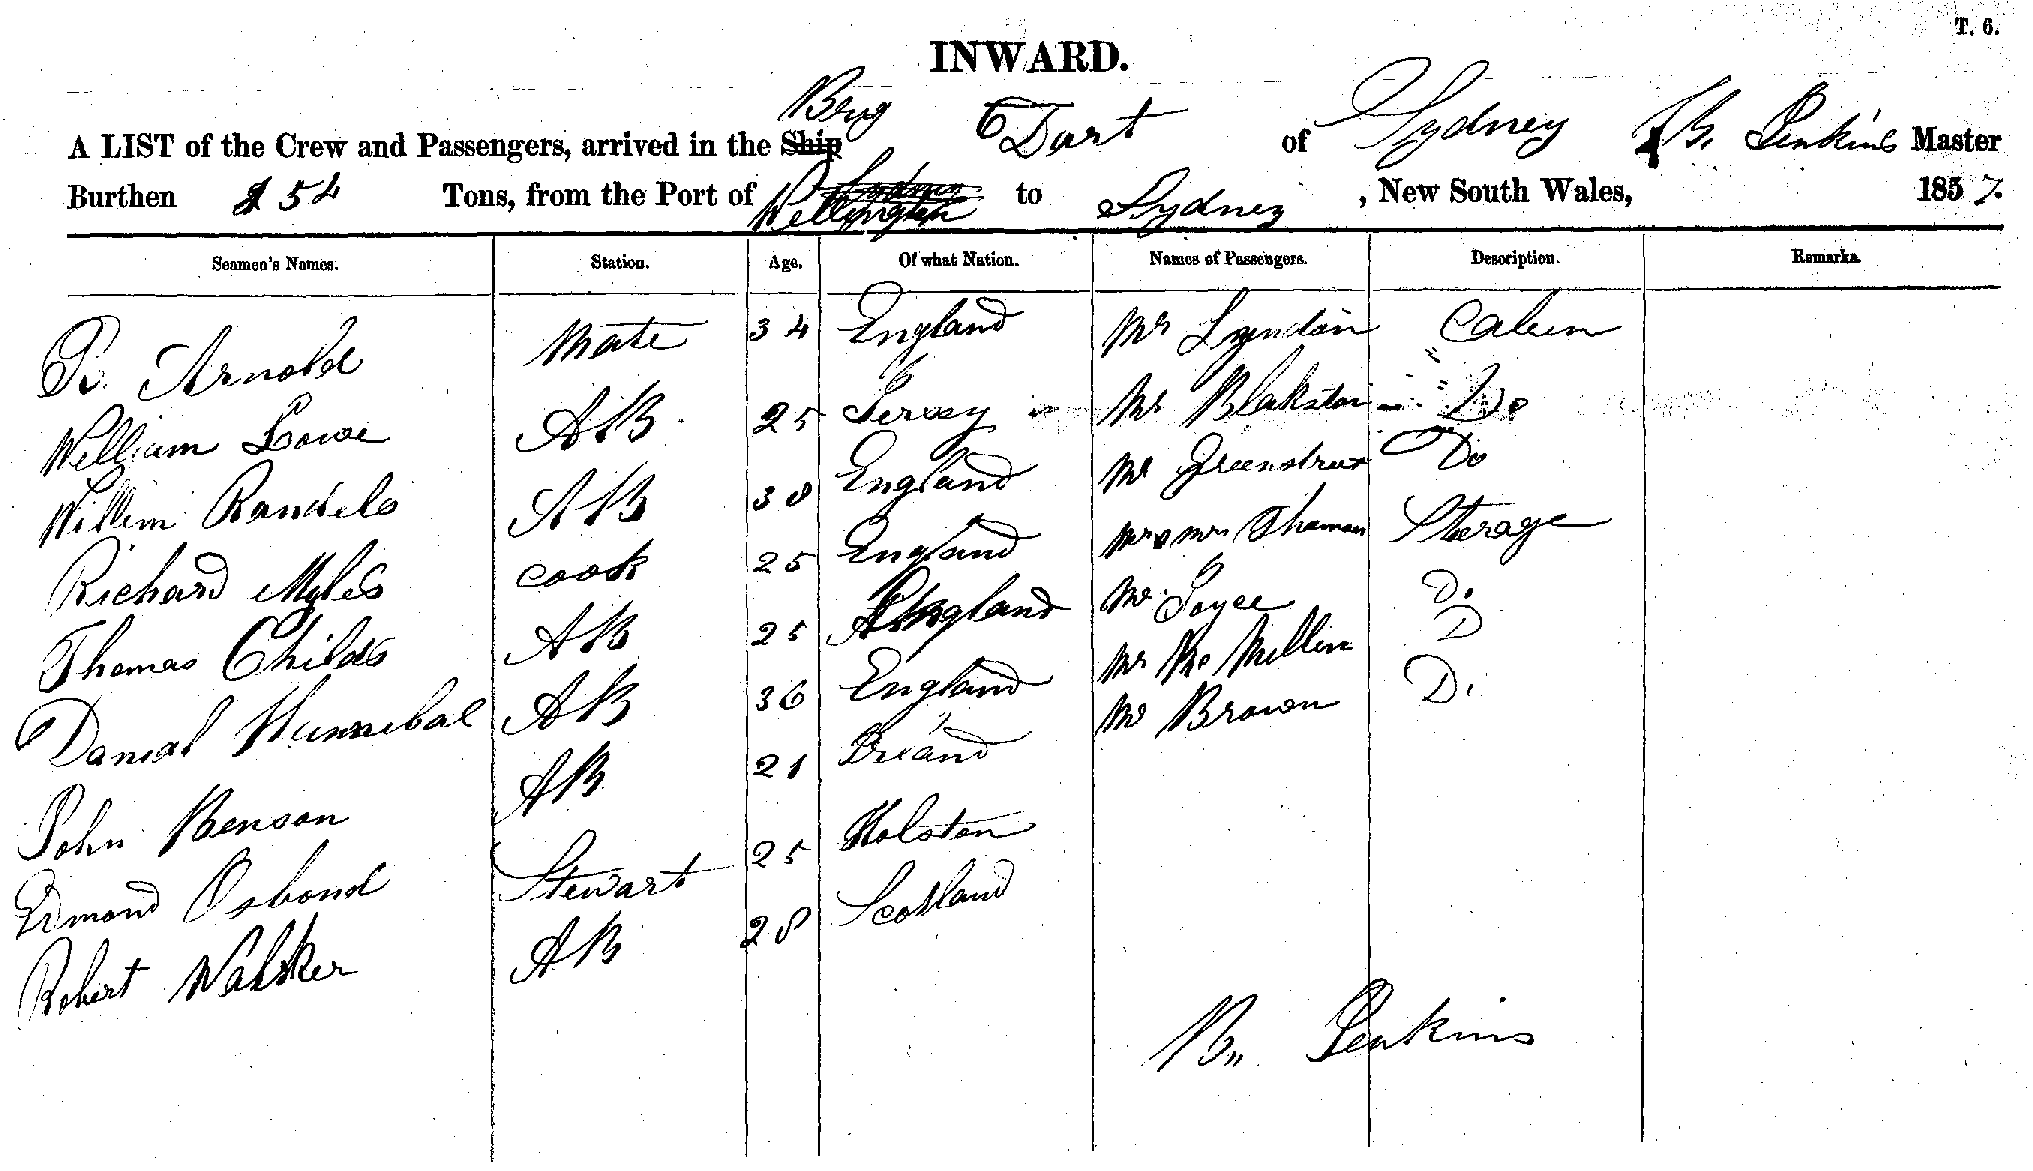 T. 6.
INWARD.
A LIST of the Crew and Passengers, arrived in the Ship Brig Dart of Sydney B. Jenkins Master
Burthen 154 Tons, from the Port of Wellington to Sydney, New South Wales, 1857.
Seamen's Names. Station. Age. Of what Nation. Names of Passengers. Description. Remarks.
R. Arnold Mate 34 England Mr Lyndon Cabin
William Lowe AB 25 Jersey Mr Blakston Do
Willim Randels AB 38 England Mr Greenstreet Do
Richard Myles Cook 25 England Mr & Mrs Thomas Sterage
Thomas Childs AB 25 England Mr Joyce Do
Danial Hannibal AB 36 England Mr Mc Millin D
John Benson AB 21 Mr Brown Do
Edmond Osbond Stewart 25 Holston
Robert Walker AB 28 Scotland
Bn Jenkins